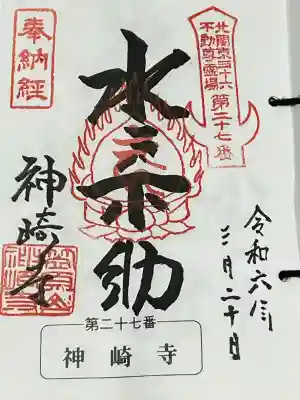 北関東三十六
不動尊霊場
第二十七番
奉納経
水不助
令和六年
三月二十日
神崎寺
第二十七番
神崎寺